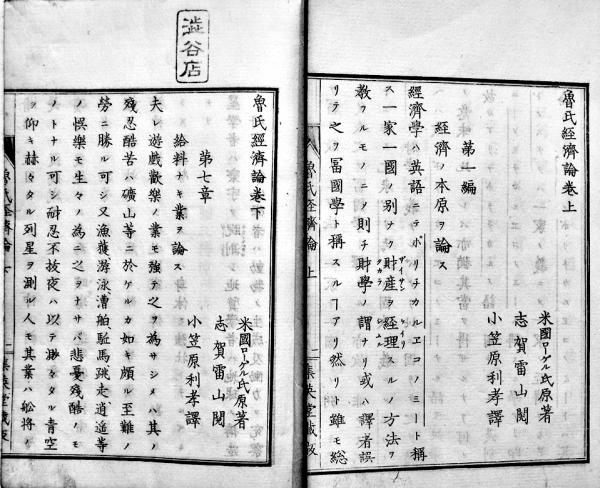 魯氏經濟論卷上
米國ローゲル氏原著
志賀雷山閲
小笠原利孝譯
第一編
經濟ノ本原ヲ論ス
經濟學ハ英語ニテポリチカルエコノミート稱
ス一家一國ノ別ナク財産ヲ經理スルノ方法ヲ
教フルモノニヲ則チ財學ノ謂ナリ或ハ譯者誤
リテ之ヲ冨國學ト稱スルヿアリ然リト雖モ總
魯氏経済論 上
一 集英堂蔵板
澁谷店
魯氏經濟論卷下
米國ローゲル氏原著
志賀雷山閲
小笠原利孝譯
第七章
給料ナキ業ヲ論ス
夫レ遊戯歡樂ノ業モ強テ之ヲ為サシメハ其ノ
殘忍酷苦ハ礦山等ニ於ケルカ如キ頗ル至難ノ
勞ニ勝ル可シ又漁獲游泳漕舶駈馬跳走逍遥等
ノ悞樂モ生々ノ為ニ之ヲナサハ悲憂殘酷ノモ
ノトナル可シ耐忍不拔夜ハ以テ眇々タル青空
ヲ仰キ赫々タル列星ヲ測ル人モ其業ハ舩将ノ
魯氏経済論 下
一 集英堂蔵板